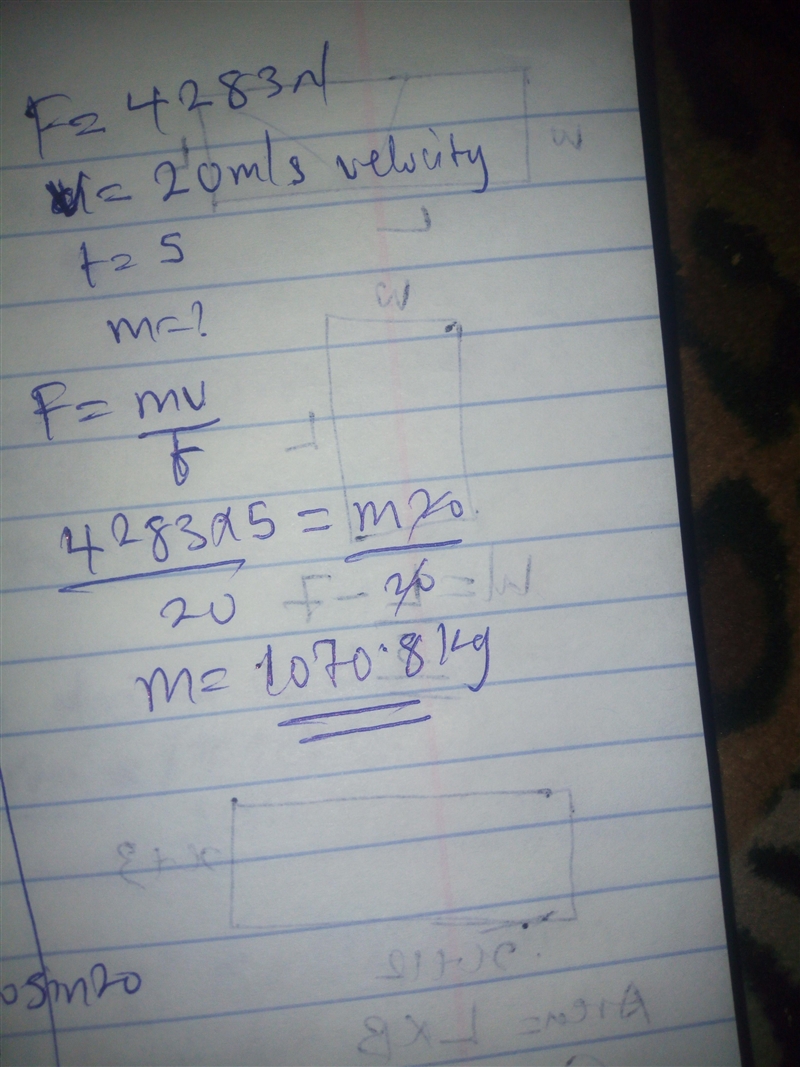 F = 4283N
v = 20m/s velocity
t = 5
m = ?
F = mv
t
4283x5 = m20
20 20
m = 1070.8kg
W
L
W
L
W = L - 7
x+3
x+12
Area = L x B